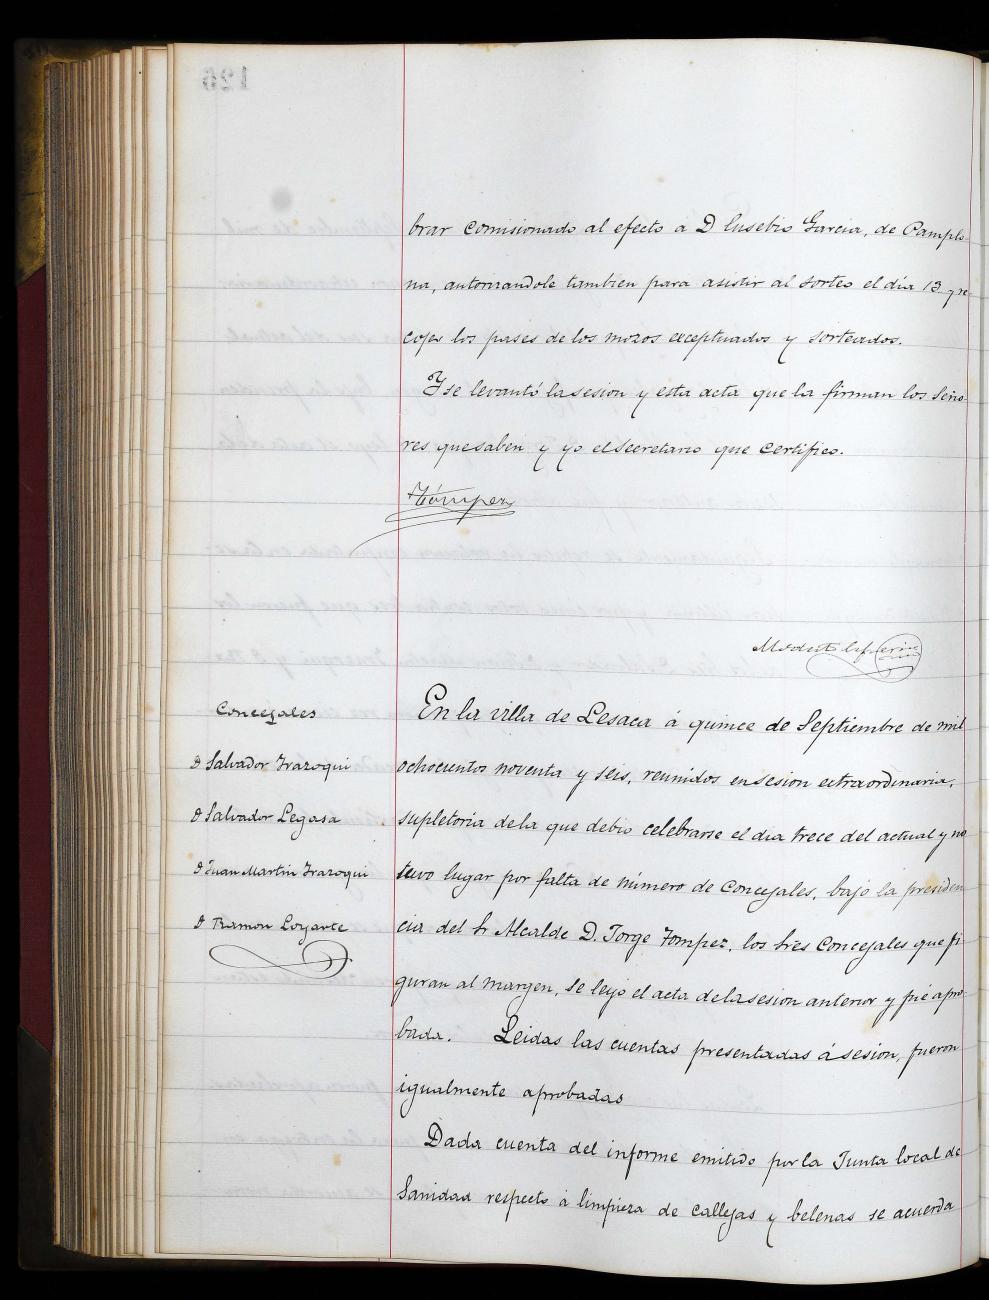 brar comisionado al efecto a D Eusebio Garcia, de Pamplo-
na, autorizandole tambien para asistir al sorteo el dia 13 y re-
cojer los pases de los mozos exceptuados y sorteados.
Y se levantó la sesion y esta acta que la firman los Seño-
res que saben y yo el Secretario que certifico.
Tómpez
Modesto
Concejales
D Salvador Irazoqui
D Salvador Legasa
D Juan Martin Irazoqui
D Ramon Loyarte
En la villa de Lesaca á quince de Septiembre de mil
ochocientos noventa y seis, reunidos en sesion extraordinaria,
supletoria de la que debio celebrarse el dia trece del actual y no
tuvo lugar por falta de número de Concejales, bajo la presiden
cia del Sr Alcalde D. Jorge Tompez, los Sres Concejales que fi
guran al margen, se leyó el acta de la sesion anterior y fué apro-
bada. Leidas las cuentas presentadas á sesion, fueron
igualmente aprobadas
Dada cuenta del informe emitido por la Junta local de
Sanidad respecto a limpieza de callejas y belenas se acuerda